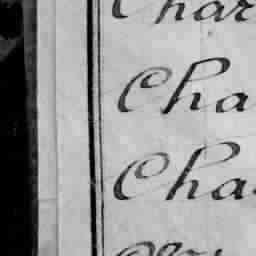 Char
Cha
Cha